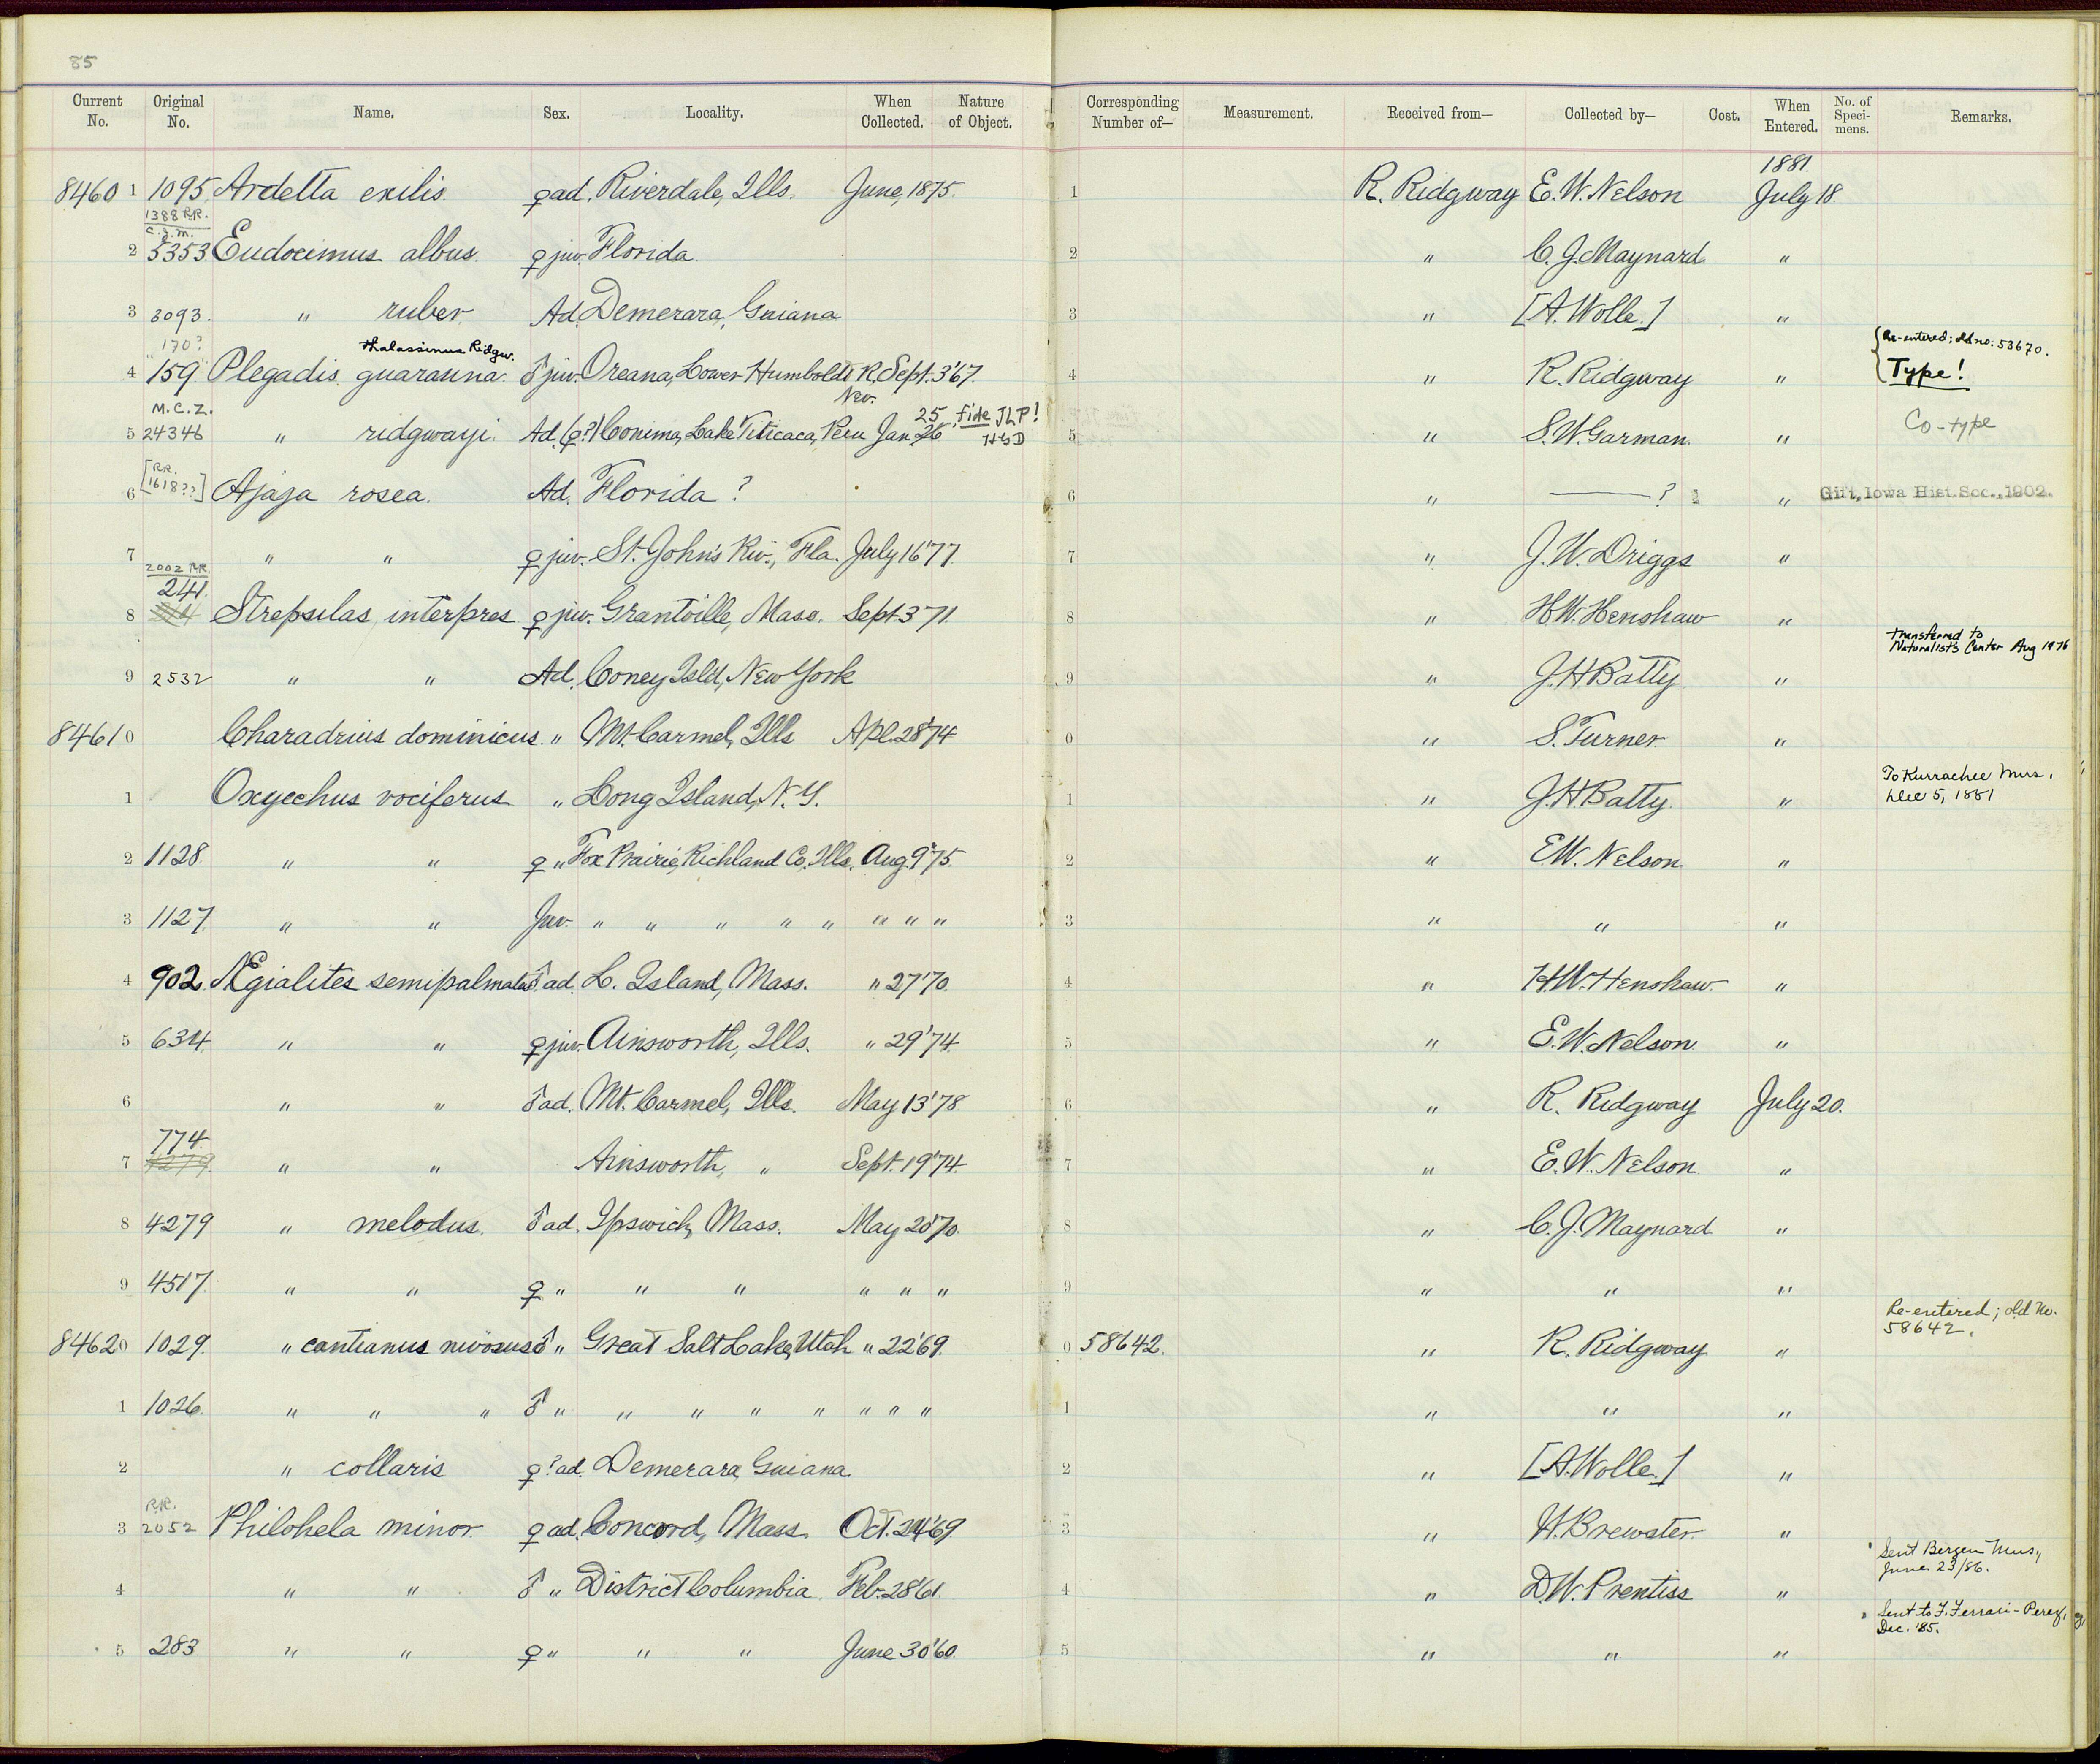 85
Current No. Original No. Name. Sex. Locality. When Collected. Nature of Object. Corresponding Number of— Measurement. Received from— Collected by— Cost. When Entered. No. of Specimens. Remarks.
1881.
84601 1095 Ardetta exilis ♀ad. Riverdale, Ills. June, 1875. 1 R. Ridgway E. W. Nelson July 18.
1388 R.R.
C.J.M.
2 5353 Eudocimus albus. ♀ juv. Florida 2 " C. J. Maynard "
3 3093. " ruber Ad. Demerara, Guiana 3 " [A. Wolle.] "
170?
thalassinus Ridgw.
Re-entered; old no. 53670.
4 159 Plegadis guarauna. ♂ juv. Oreana, Lower Humboldt R. Nev. Sept. 3'67. 4 " R. Ridgway " Type!
M.C.Z.
25, fide JLP!
5 24346 " ridgwayi. Ad. (♀?) Conima, Lake Titicaca, Peru Jan 26 HGD 5 " S. W. Garman. " Co-type
[R.R. 1618??]
6 Ajaja rosea. Ad. Florida ? 6 " ——? " Gift, Iowa Hist. Soc., 1902.
7 " " ♀ juv. St. John's Riv., Fla. July 16'77. 7 " J. W. Driggs "
2002 R.R.
241.
8 Strepsilas interpres ♀ juv. Grantville, Mass. Sept. 3'71 8 " H. W. Henshaw "
transferred to
Naturalist's Center Aug 1976
9 2532 " " Ad. Coney Isld, New York 9 " J. H Batty "
84610 Charadrius dominicus. " Mt. Carmel, Ills Apl. 28'74 0 " S. Turner "
To Kurrachee Mus.
Dec 5, 1881
1 Oxyechus vociferus " Long Island, N. Y. 1 " J. H Batty. "
2 1128. " " ♀ " Fox Prairie, Richland Co., Ills. Aug. 9'75. 2 " E. W. Nelson "
3 1127. " " Juv. " " " " " " " " 3 " " "
4 902. Ægialites semipalmatus ♂ ad. L. Island, Mass. " 27'70. 4 " H. W. Henshaw. "
5 634. " " ♀ juv. Ainsworth, Ills. " 29'74. 5 " E. W. Nelson. "
6 " " ♂ ad. Mt. Carmel, Ills. May 13'78 6 " R. Ridgway July 20.
774.
7 " " Ainsworth, " Sept. 19'74. 7 " E. W. Nelson "
8 4279 " melodus. ♂ ad. Ipswich, Mass. May 20'70. 8 " C. J. Maynard "
9 4517. " " ♀ " " " " " " 9 " " "
Re-entered; old No.
58642.
84620 1029. " cantianus nivosus ♂ " Great Salt Lake, Utah " 22'69. 0 58642. " R. Ridgway "
1 1026. " " " ♂ " " " " " " " " 1 " " "
2 " collaris ♀? ad. Demerara, Guiana 2 " [A. Wolle.] "
R.R.
3 2052 Philohela minor ♀ ad. Concord, Mass. Oct. 24'69 3 " W. Brewster. "
Sent Bergen Mus.,
June 23/86.
4 " " ♂ " District Columbia Feb. 28'61. 4 " D. W. Prentiss "
Sent to F. Ferrari-Perez,
Dec. '85.
5 283 " " ♀ " " " June 30'60. 5 " " "